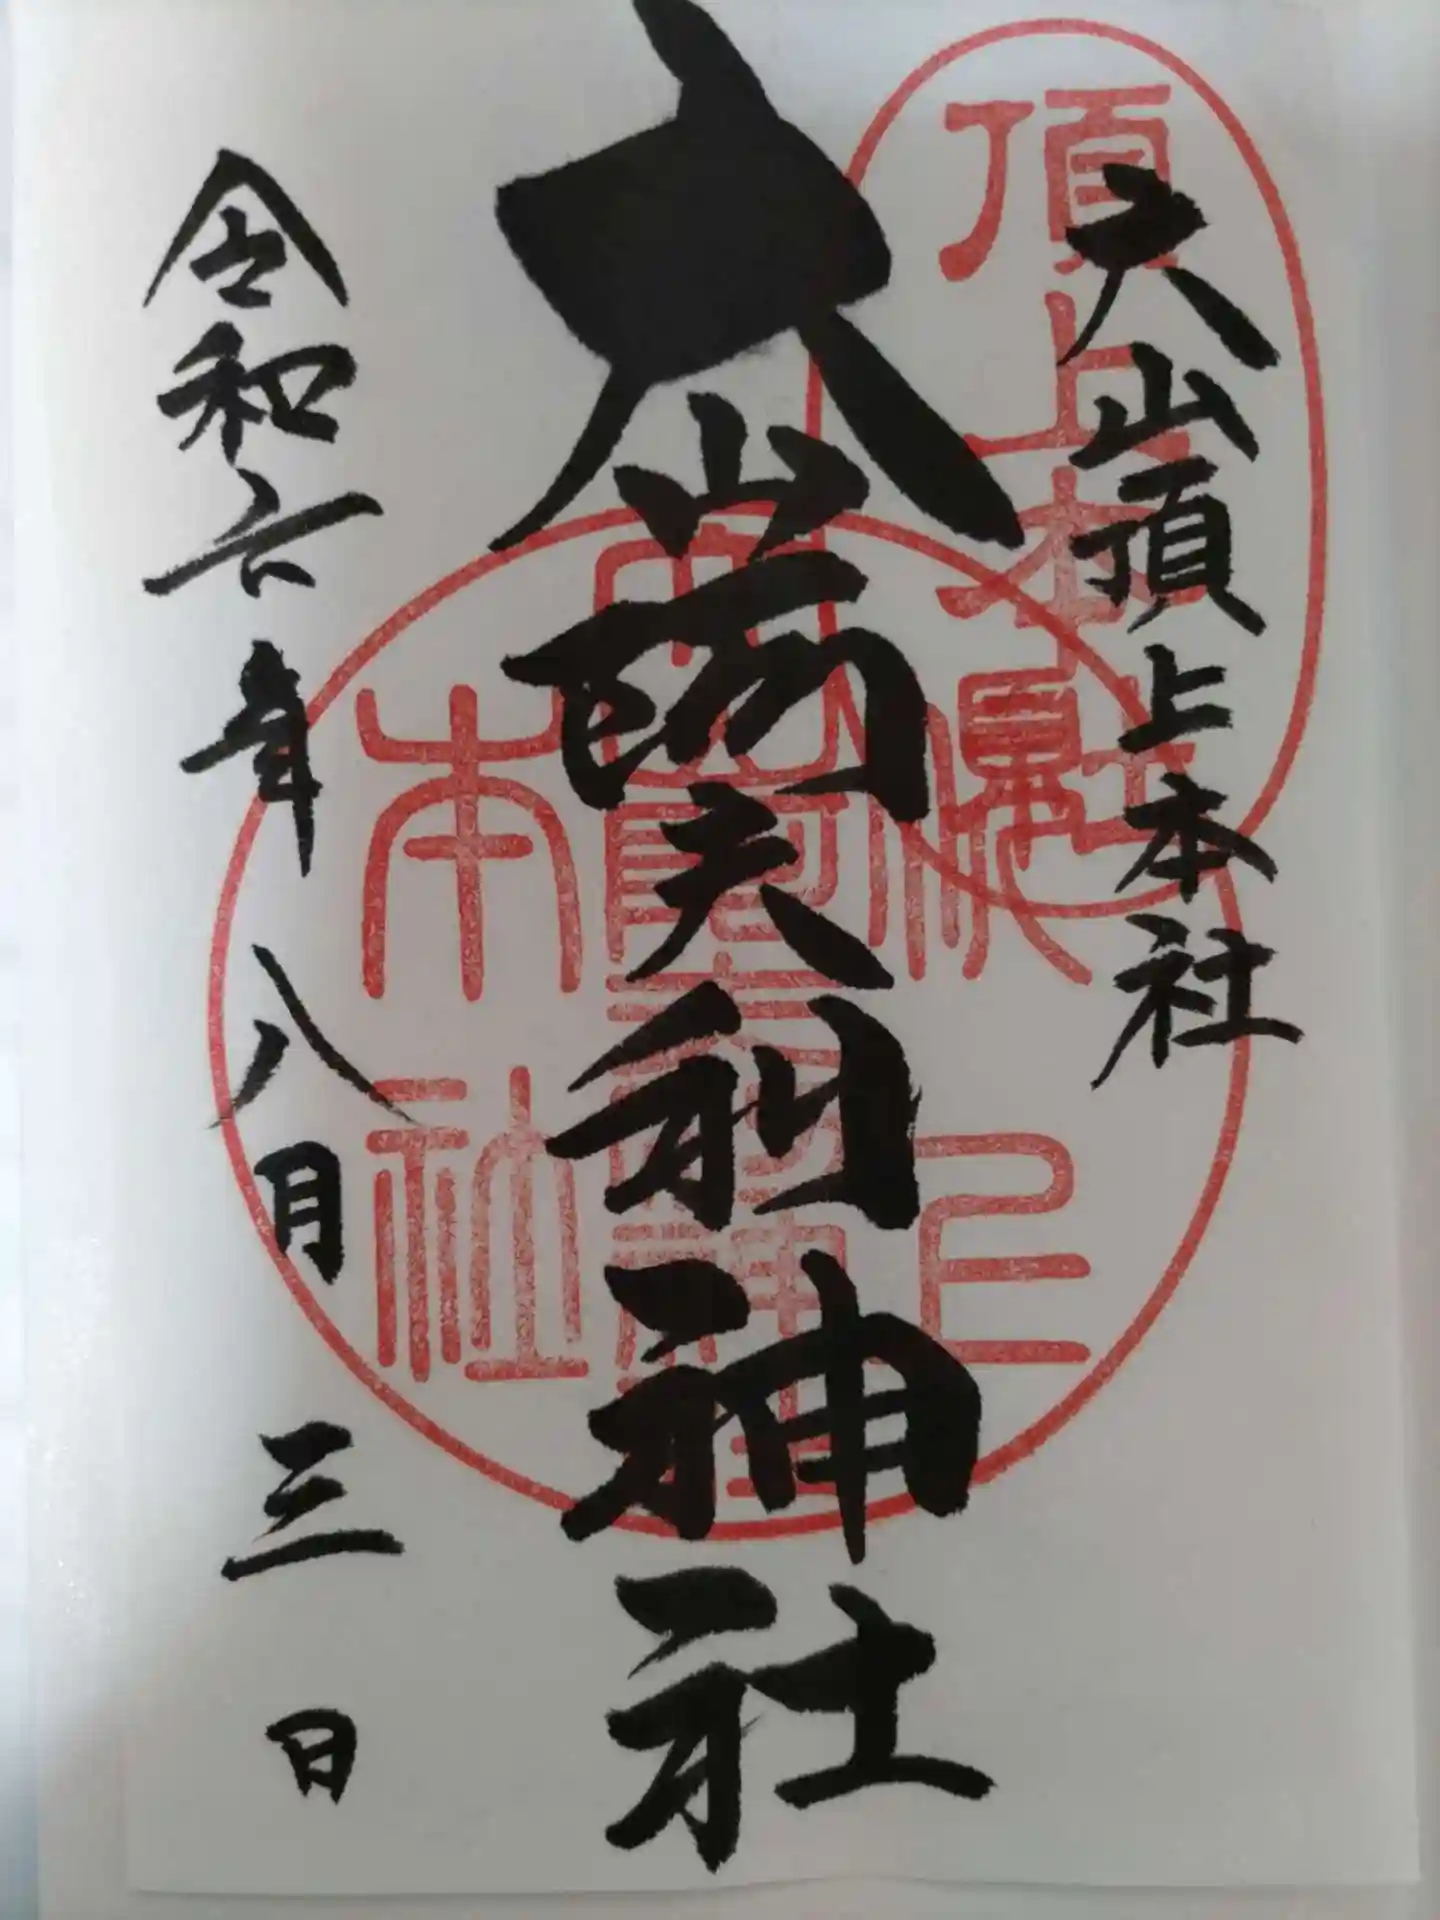 大山頂上本社
大山阿夫利神社
令和六年八月三日
頂上本社
本社